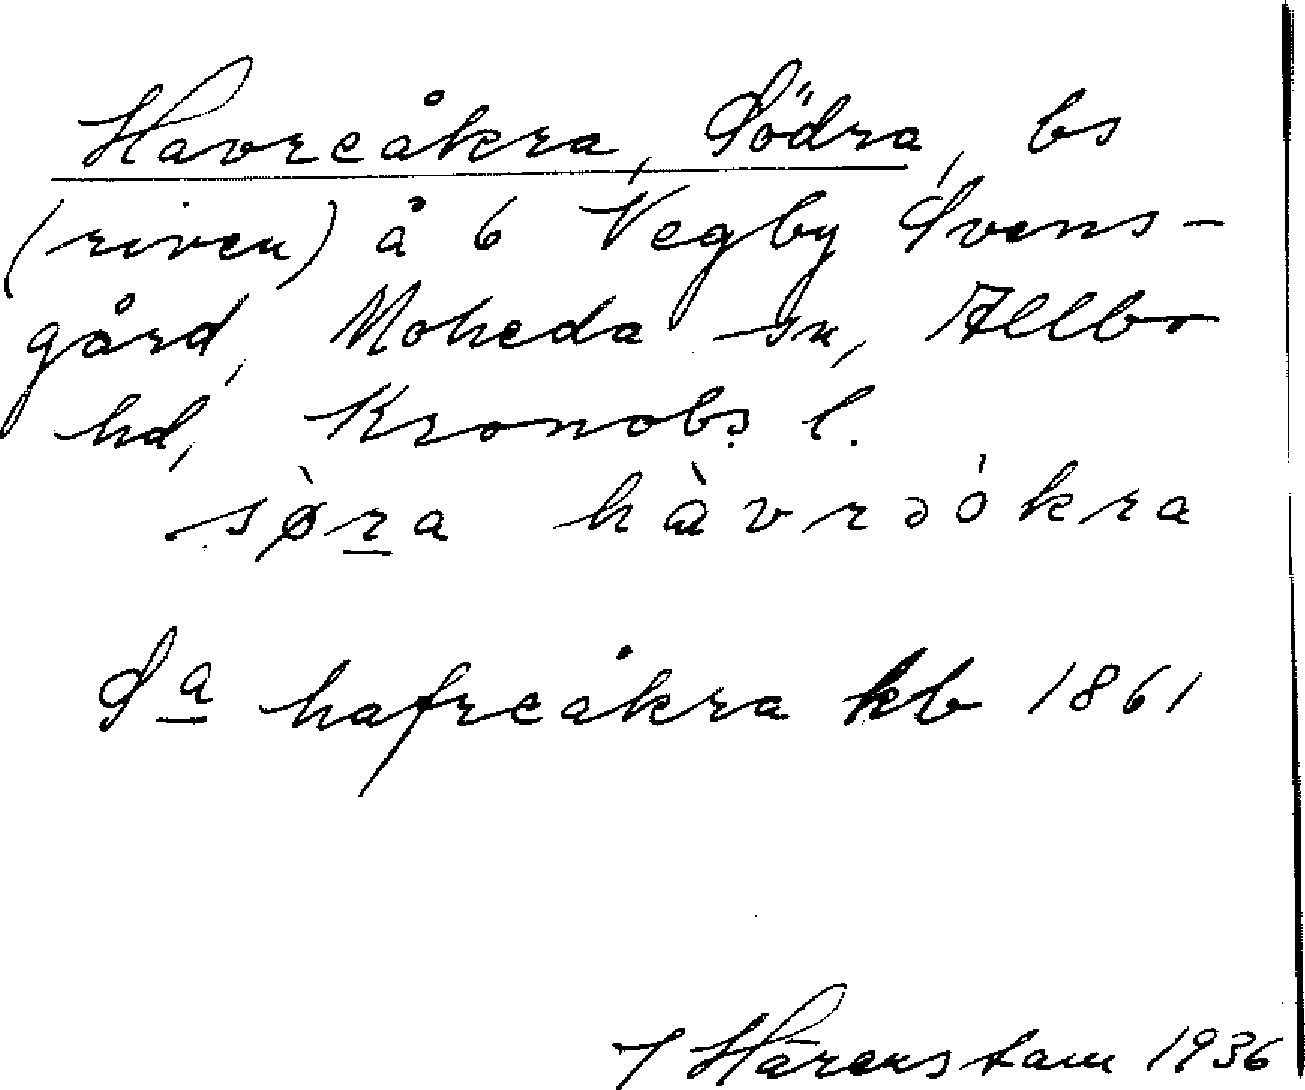 Havreåkra, Södra, bs
(riven) å 6 Vegby Svens-
gård, Moheda sn, Allbo
hd, Kronobs l.
sø̀ra hàvrəókra
Sa hafreåkra kb 1861
J Härenstam 1936